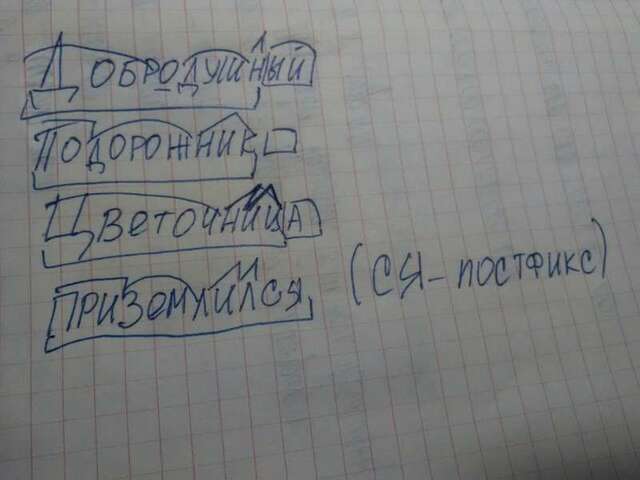 Добродушный
Подорожник
Цветочница
Приземлился (ся – постфикс)